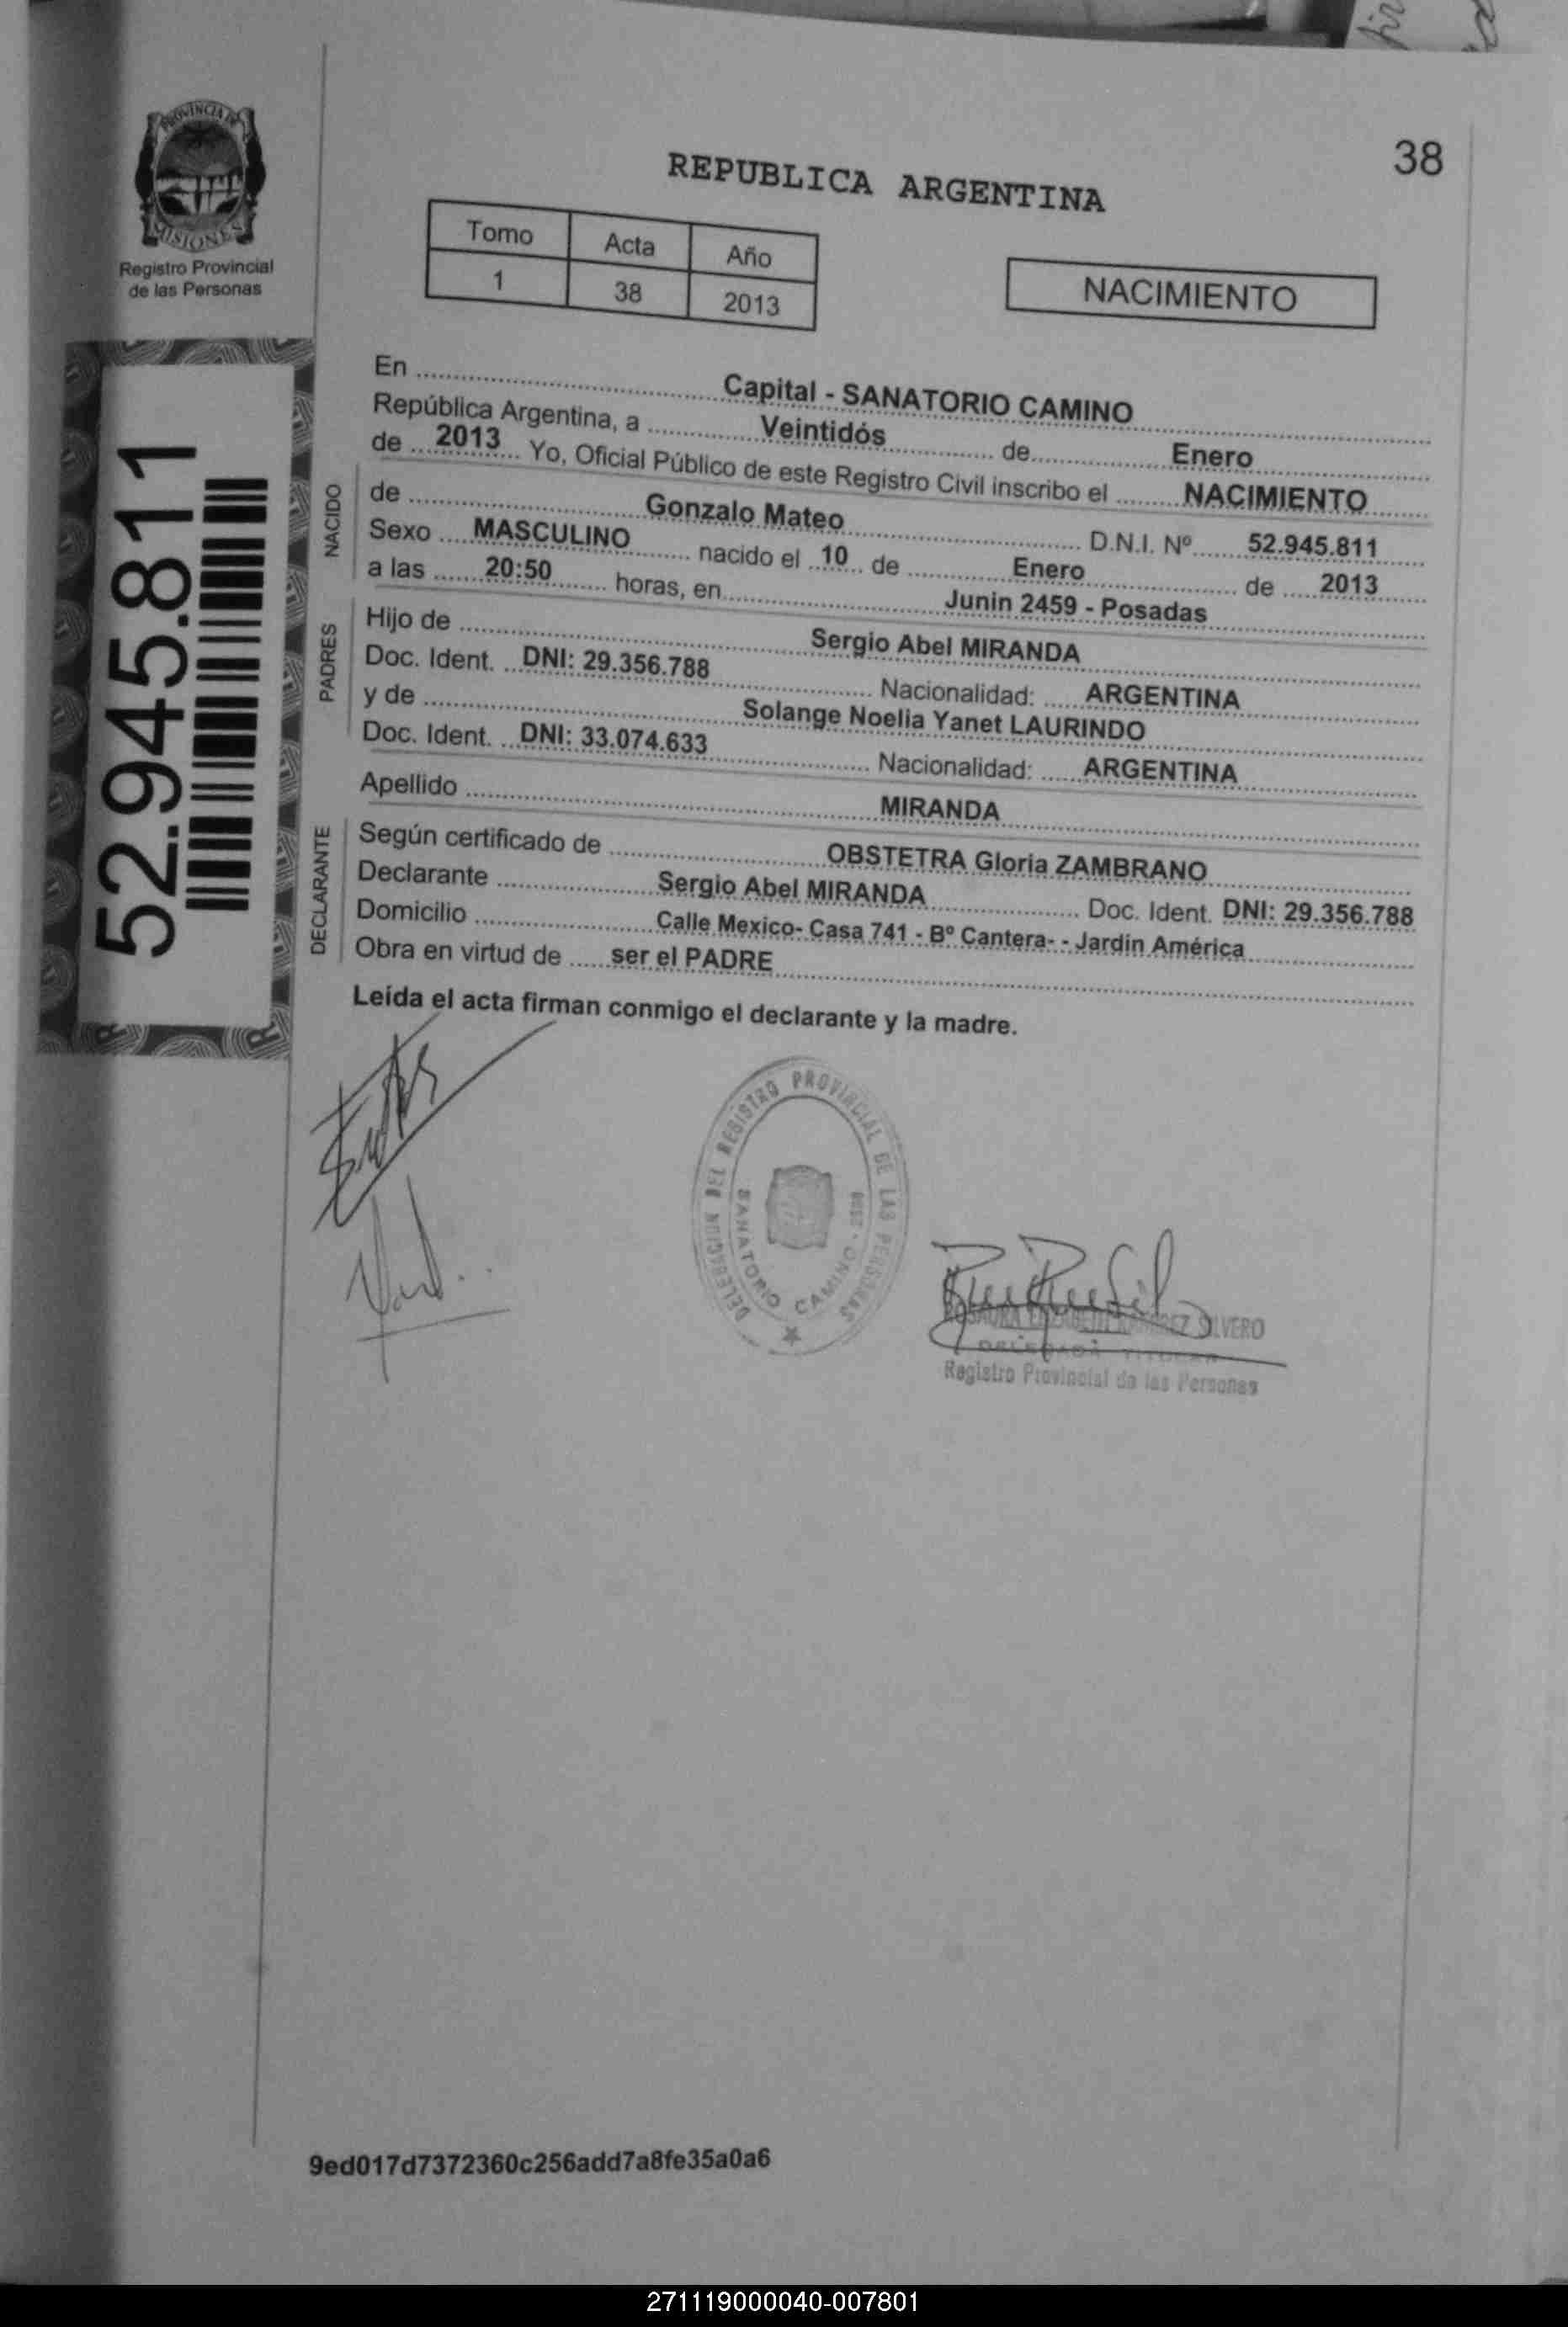 38
PROVINCIA DE
MISIONES
Registro Provincial
de las Personas
REPUBLICA ARGENTINA
Tomo Acta Año
1 38 2013
NACIMIENTO
52.945.811
En Capital - SANATORIO CAMINO
República Argentina, a Veintidós de Enero
de 2013 Yo, Oficial Público de este Registro Civil inscribo el NACIMIENTO
NACIDO
de Gonzalo Mateo D.N.I. Nº 52.945.811
Sexo MASCULINO nacido el 10 de Enero de 2013
a las 20:50 horas, en Junin 2459 - Posadas
PADRES
Hijo de Sergio Abel MIRANDA
Doc. Ident. DNI: 29.356.788 Nacionalidad: ARGENTINA
y de Solange Noelia Yanet LAURINDO
Doc. Ident. DNI: 33.074.633 Nacionalidad: ARGENTINA
Apellido MIRANDA
DECLARANTE
Según certificado de OBSTETRA Gloria ZAMBRANO
Declarante Sergio Abel MIRANDA Doc. Ident. DNI: 29.356.788
Domicilio Calle Mexico- Casa 741 - Bº Cantera- - Jardin América
Obra en virtud de ser el PADRE
Leída el acta firman conmigo el declarante y la madre.
DELEGACION DEL REGISTRO PROVINCIAL DE LAS PERSONAS
SANATORIO CAMINO
ROSAURA ELIZABETH RAMIREZ SILVERO
DELEGADA TITULAR
Registro Provincial de las Personas
9ed017d7372360c256add7a8fe35a0a6
271119000040-007801